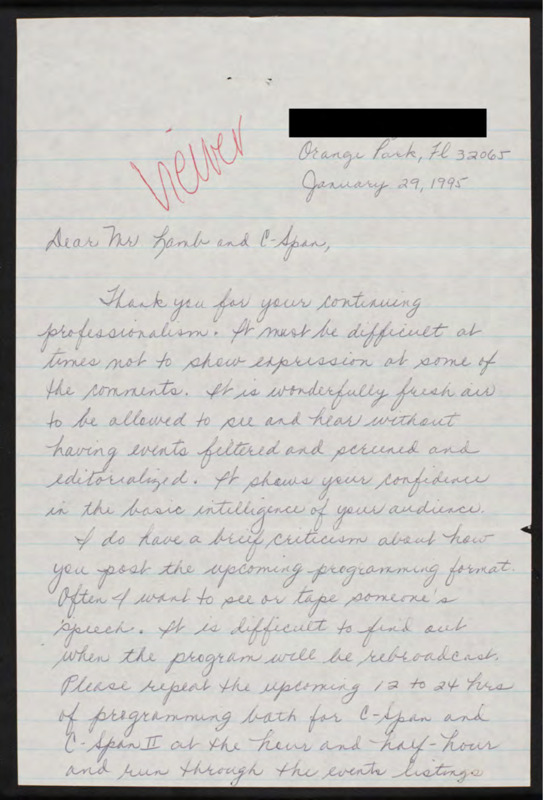 viewer
Orange Park, Fl 32065
January 29, 1995
Dear Mr Lamb and C-Span,
Thank you for your continuing
professionalism. It must be difficult at
times not to show expression at some of
the comments. It is wonderfully fresh air
to be allowed to see and hear without
having events filtered and screened and
editorialized. It shows your confidence
in the basic intelligence of your audience.
I do have a brief criticism about how
you post the upcoming programming format.
Often I want to see or tape someone's
speech. It is difficult to find out
when the program will be rebroadcast.
Please repeat the upcoming 12 to 24 hrs
of programming both for C-Span and
C-Span II at the hour and half-hour
and run through the events listings